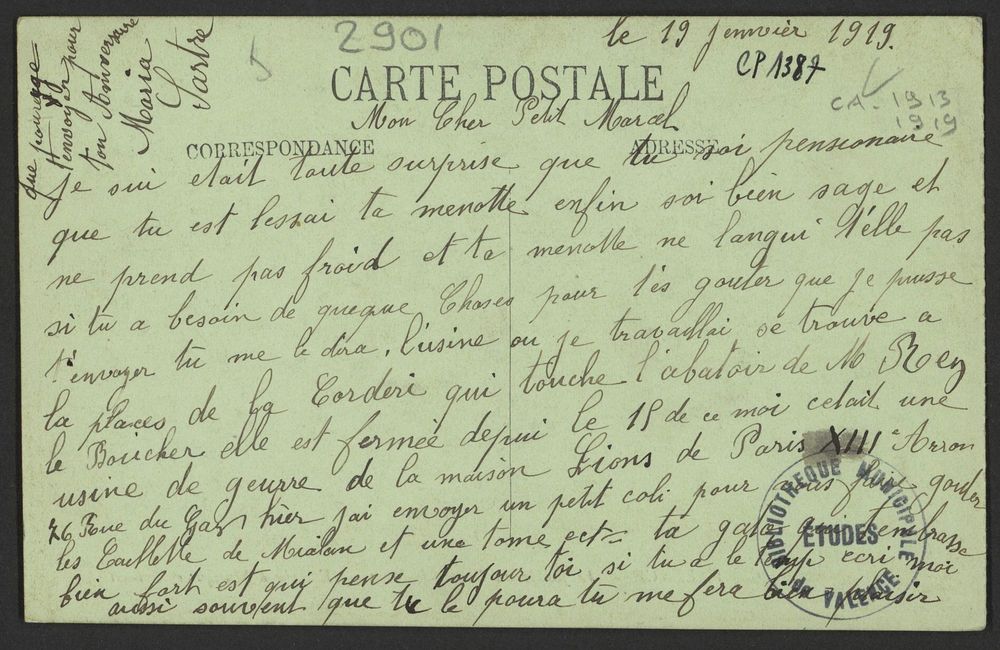 2901
le 19 jenvier 1919.
CP 1387
CARTE POSTALE
CA. 1913
1919
Mon Cher Petit Marcel
CORRESPONDANCE ADRESSE
Je sui etait toute surprise que tu soi pensionaire
que tu est lessai ta menotte enfin soi bien sage et
ne prend pas froid et ta menotte ne langui t'elle pas
si tu a besoin de queque Choses pour tes gouter que je puisse
t'envoyer tu me le dira, l'usine ou je travaillai se trouve a
la places de Corderi qui touche l'abatoir de M Rey
le Boucher elle est fermée depui le 15 de ce moi cetait une
usine de geurre de la maison Lions de Paris XIII e Arron
26 Rue du Gaz hier jai envoyer un petit coli pour gouter
les Caillette de Mialan et une tome ect ta embrasse
bien fort est qui pense toujour toi si tu a le temp ecri moi
aussi souvent que tu le poura tu me fera bien plaisir
que
t'envoyer pour
ton Aniversaire
Maria
Sartre
BIBLIOTHEQUE MUNICIPALE
ETUDES
de VALENCE